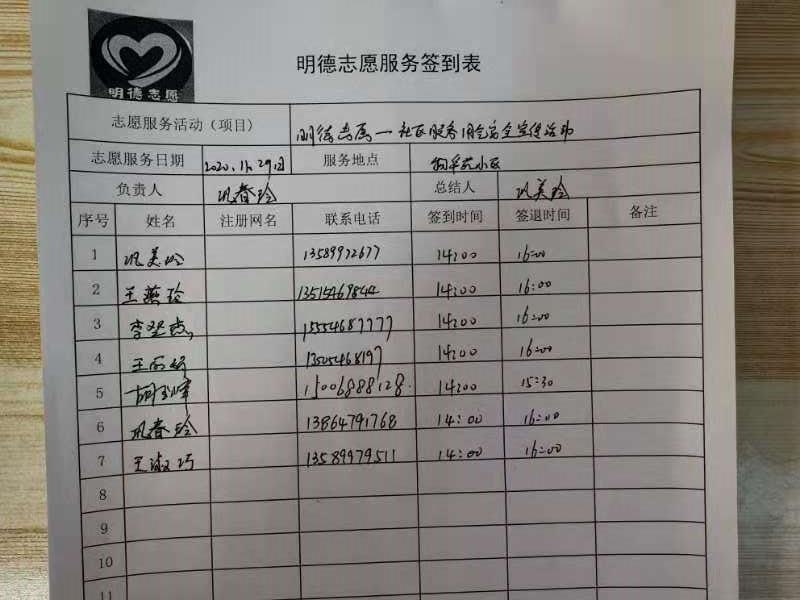 明德志愿
明德志愿服务签到表
志愿服务活动（项目） 明德志愿—社区服务用气安全宣传活动
志愿服务日期 2020.11.29日 服务地点 小区
负责人 巩春玲 总结人 巩美玲
序号 姓名 注册网名 联系电话 签到时间 签退时间 备注
1 巩美玲 13589972677 14:00 16:00
2 王燕玲 13515469844 14:00 16:00
3 李 15554687777 14:00 16:00
4 王丽娟 13505468197 14:00 16:00
5 胡 15006888128 14:00 15:30
6 巩春玲 13864791768 14:00 16:00
7 王淑巧 13589979511 14:00 16:00
8
9
10
11